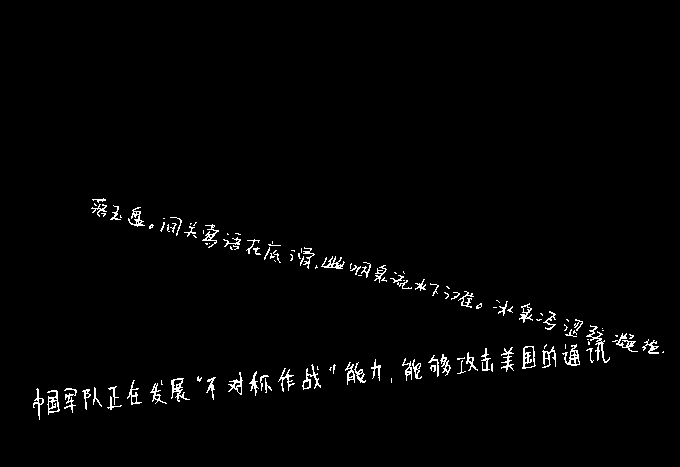 落玉盘。间关莺语在底滑,幽咽泉流水下滩。冰泉冷涩弦凝绝,
中国军队正在发展“不对称作战”能力,能够攻击美国的通讯